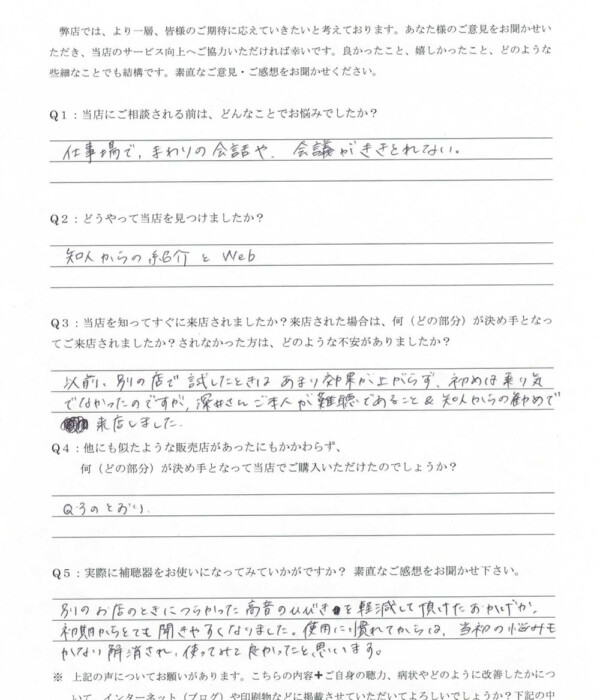 弊店では、より一層、皆様のご期待に応えていきたいと考えております。あなた様のご意見をお聞かせい
ただき、当店のサービス向上へご協力いただければ幸いです。良かったこと、嬉しかったこと、どのような
些細なことでも結構です。素直なご意見・ご感想をお聞かせください。
Q1：当店にご相談される前は、どんなことでお悩みでしたか？
仕事場で、まわりの会話や、会議がききとれない。
Q2：どうやって当店を見つけましたか？
知人からの紹介と Web
Q3：当店を知ってすぐに来店されましたか？来店された場合は、何（どの部分）が決め手となっ
てご来店されましたか？されなかった方は、どのような不安がありましたか？
以前、別の店で試したときはあまり効果が上がらず、初めは乗り気
でなかったのですが、深井さんご本人が難聴であること & 知人からの勧めで
来店しました。
Q4：他にも似たような販売店があったにもかかわらず、
何（どの部分）が決め手となって当店でご購入いただけたのでしょうか？
Q3のとおり.
Q5：実際に補聴器をお使いになってみていかがですか？ 素直なご感想をお聞かせ下さい。
別のお店のときにつらかった高音のひびきを軽減して頂けたおかげか、
初期からとても聞きやすくなりました。使用に慣れてからは、当初の悩みも
かなり解消され、使ってみて良かったと思います。
※ 上記の声についてお願いがあります。こちらの内容＋ご自身の聴力、病状やどのように改善したかにつ
いて、インターネット（ブログ）や印刷物などに掲載させていただいてよろしいでしょうか？下記の中